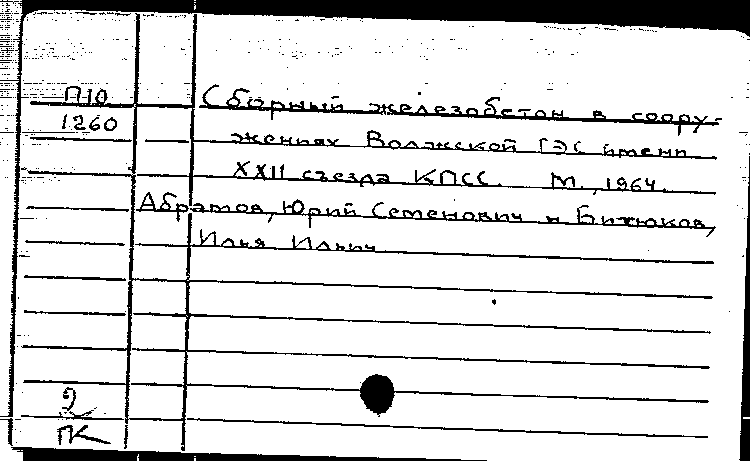 П10
1260
Сборный железобетон в соору-
жениях Волжской ГЭС имени
XXII съезда КПСС. М., 1964.
Абрамов, Юрий Семенович и Битюков,
Илья Ильич
2
ПК